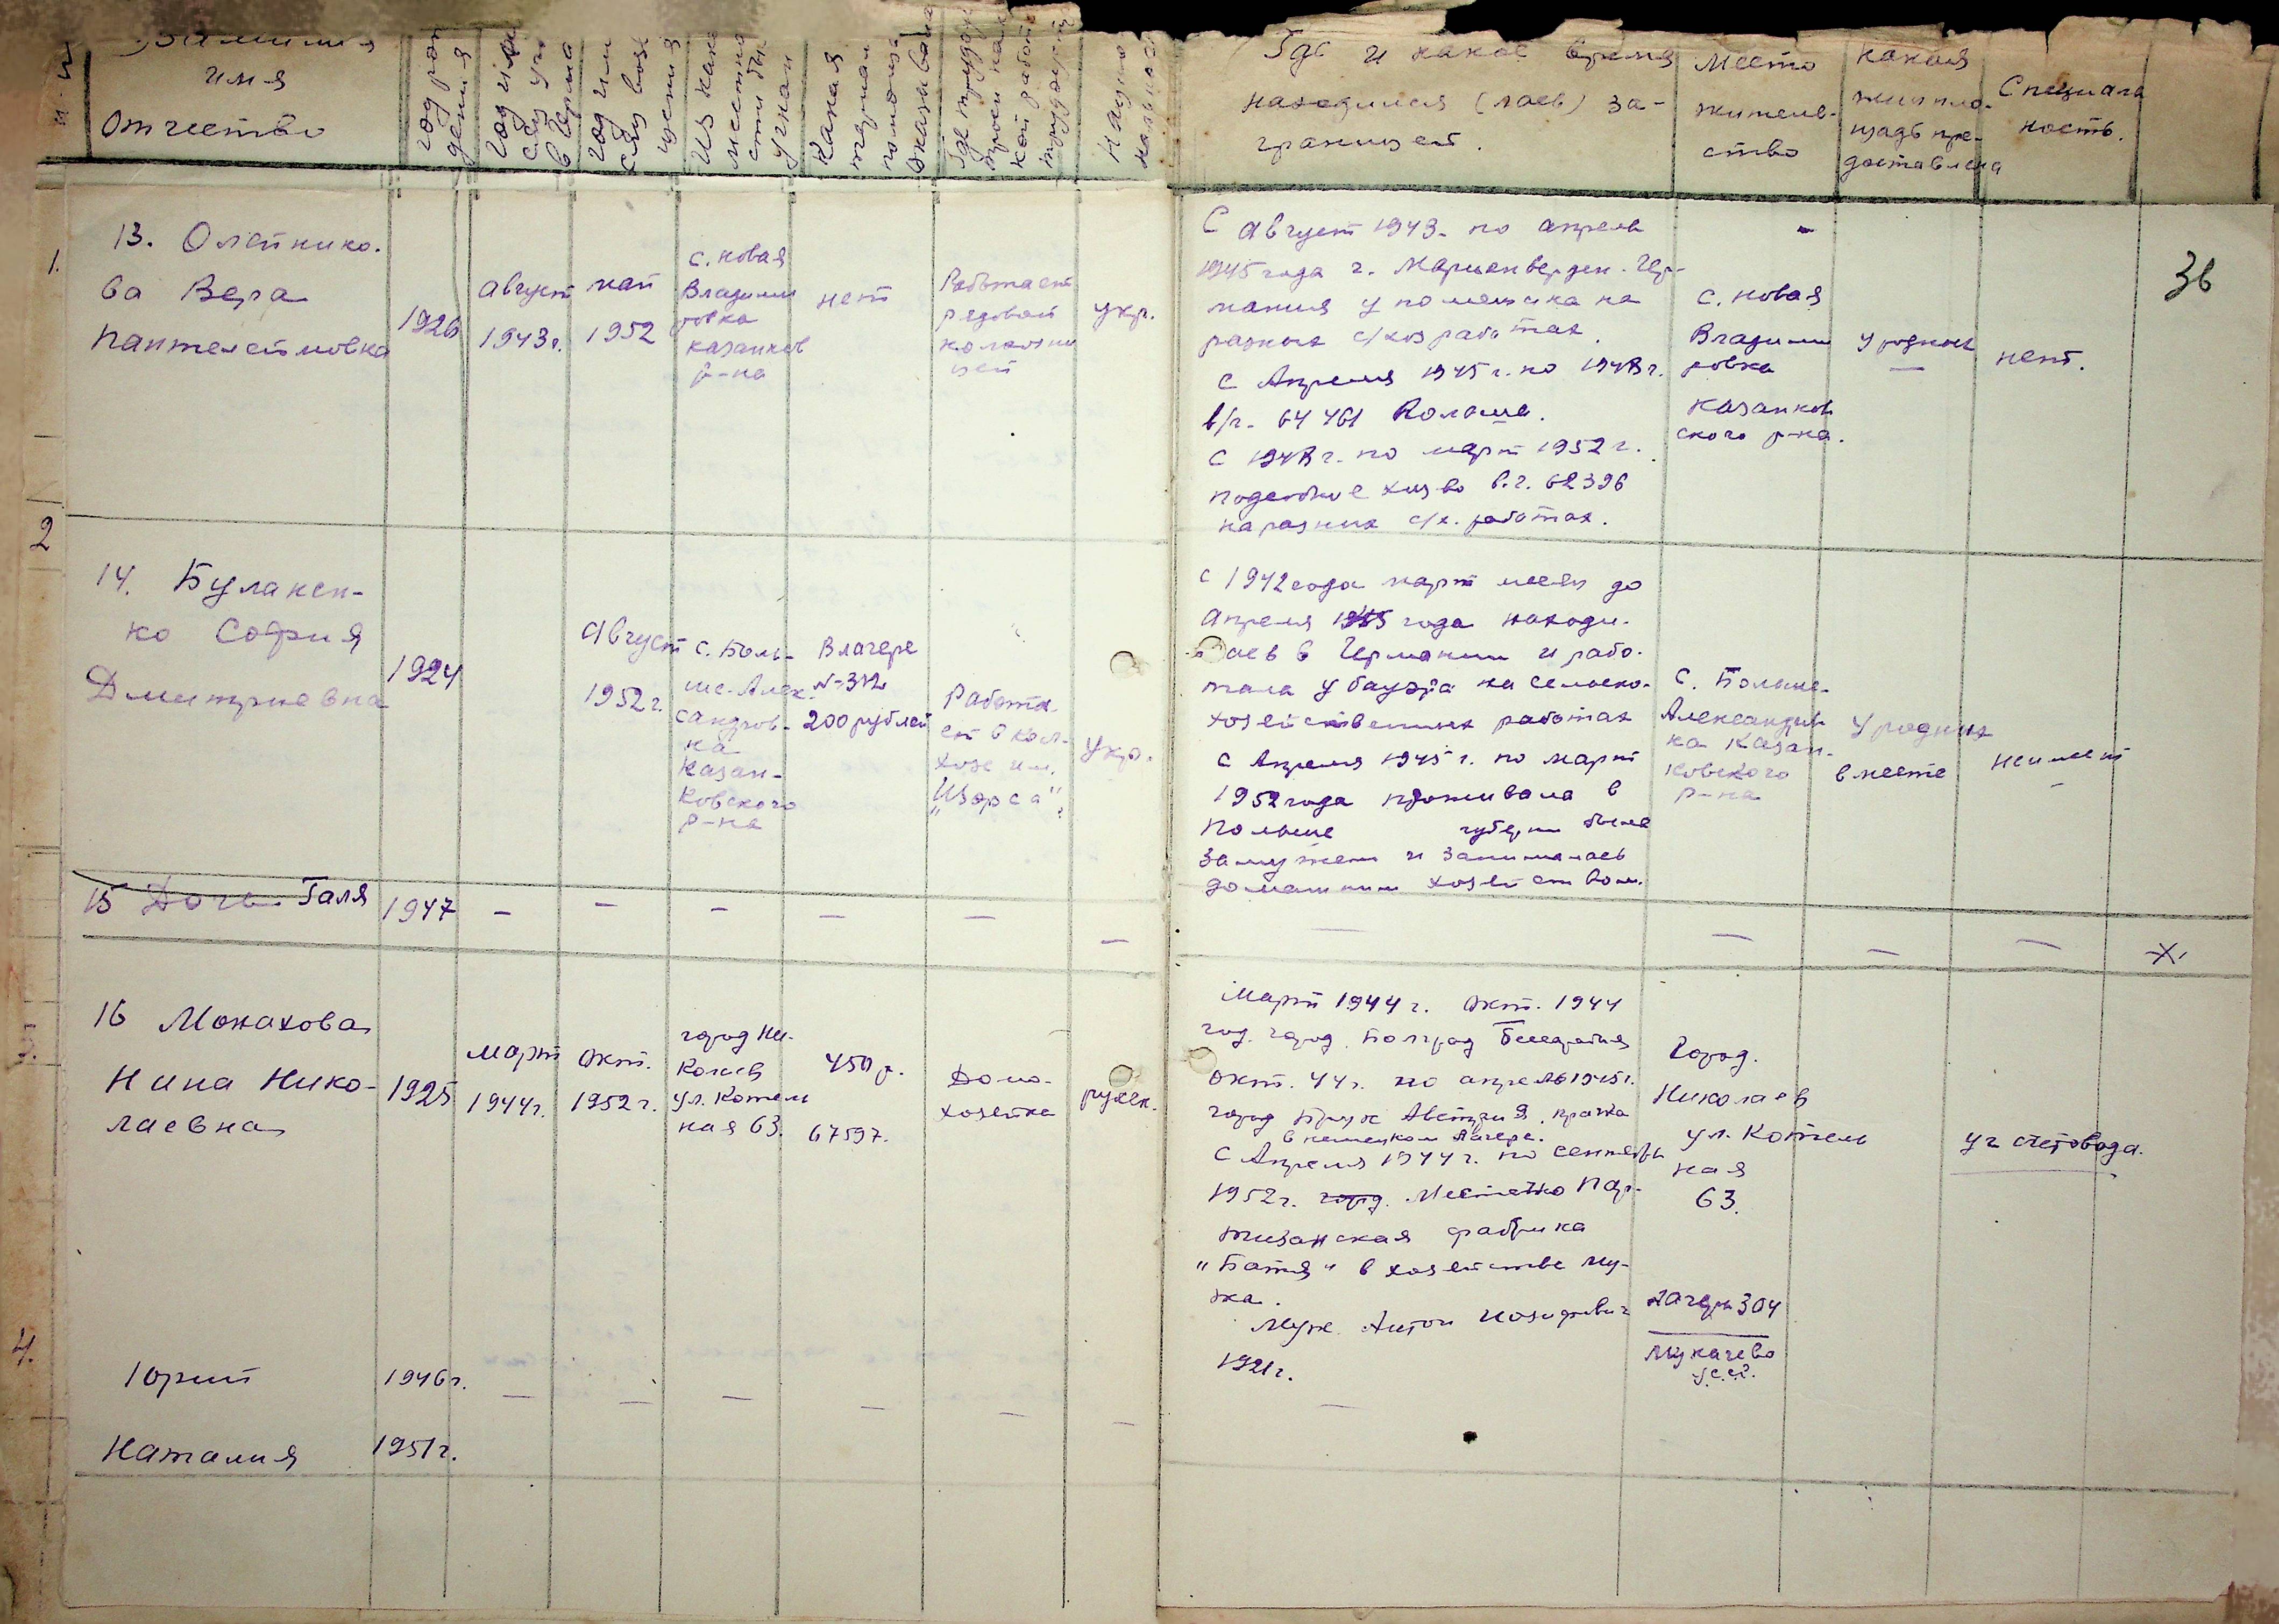 Фамилия
имя
Отчество
Год рож
дения
в Герма
Из какой
местно
сти бы
Какая
оказывала
Где и какое время
находился (лась) за-
границей.
место
житель-
ство
какая
жилпло-
щадь пре-
доставлена
Специаль
ность.
36
1.
13. Олейнико-
ва Вера
Пантелеймовна
1926
август
1943г.
май
1952
с. новая
Владими
ровка
казанков
р-на
нет
Работает
рядовой
колхозни
цей
укр.
С август 1943. по апрель
1945 года г. Мариенверден. Гер-
мания у помещика на
разных с/хоз работах.
с Апреля 1945 г. по 1948 г.
в/ч. 64461 Польша.
с 1948 г. по март 1952 г.
подсобное хоз во в.ч. 62396
на разних с/х. работах.
-
с. новая
Владими
ровка
Казанков
ского р-на.
у родных
нет.
2
14. Буланен-
ко София
Дмитриевна
1924
август
1952 г.
с. Боль-
ше-Алек-
сандров-
ка
Казан-
ковского
р-на
В лагере
№-312
200 рублей
Работа-
ет в кол-
хозе им.
"Щорса".
Укр.
с 1942 года март месяц до
апреля 1945 года находи-
лась в Германии и рабо-
тала у бауэра на сельско-
хозяйственных работах
с Апреля 1945 г. по март
1952 года проживала в
Польше губерни была
замужем и занималась
домашним хозяйством.
с. Больше-
Александров-
ка Казан-
ковского
р-на
У родных
вместе
неимеет
15 Дочь Галя
1947
- - - - - - - - - -
16 Монахова
Нина Нико-
лаевна
1925
март
1944г.
окт.
1952 г.
город Ни-
колаев
ул. Котель
ная 63.
450 р.
67597.
Домо-
хозяйка
русск.
Март 1944 г. окт. 1944
год. город. Болград Бесарабия
окт. 44 г. по апрель 1945 г.
город Брук Австрия, прачка
в немецком лагере.
С Апреля 1944 г. по сентябрь
1952 г. город. Местечко Пар-
тизанская фабрика
"Батя" в хозяйстве му-
жа.
Муж Антон Иозифович
1921 г.
Город.
Николаев
ул. Котель
ная
63.
лагерь 304
Мукачево
уч счетовода.
3.
4.
Юрий
1946 г.
- - - - - - -
Наталия
1951 г.